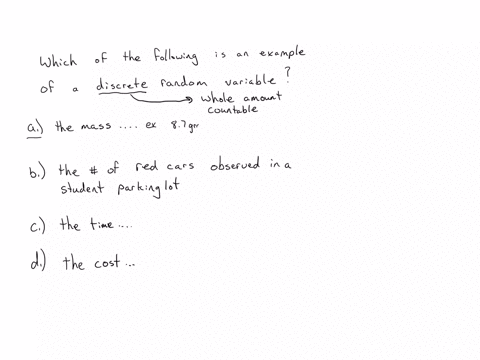 Which of the following is an example
of a discrete random variable?
whole amount
countable
a.) the mass .... ex 8.7gm
b.) the # of red cars observed in a
student parking lot
c.) the time ....
d.) the cost ...